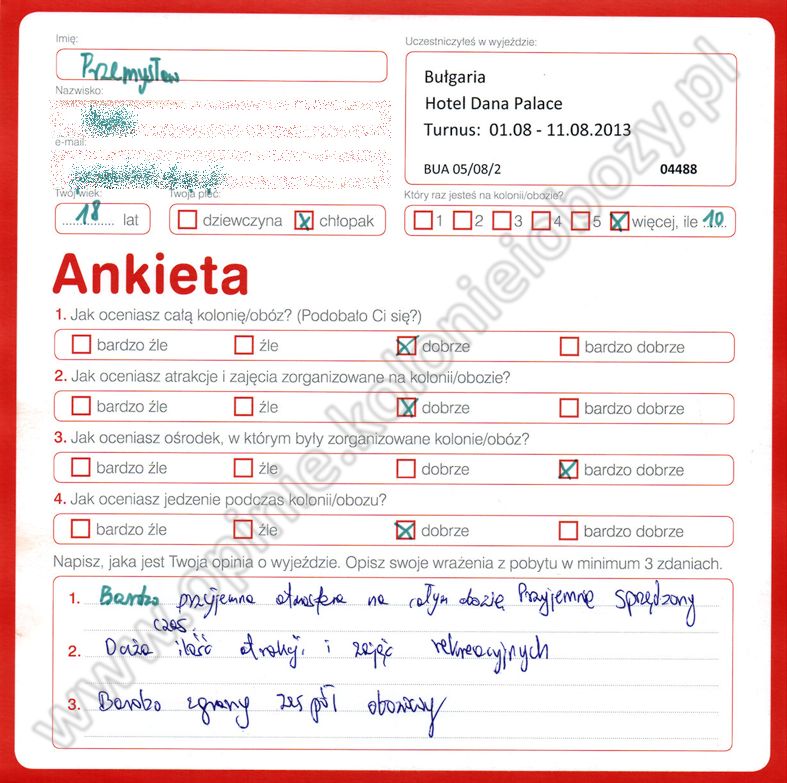 Imię:
Przemysław
Nazwisko:
e-mail:
Twój wiek:
18 lat
Twoja płeć:
dziewczyna
chłopak
Uczestniczyłeś w wyjeździe:
Bułgaria
Hotel Dana Palace
Turnus: 01.08 - 11.08.2013
BUA 05/08/2 04488
Który raz jesteś na kolonii/obozie?
1 2 3 4 5 więcej, ile 10
Ankieta
1. Jak oceniasz całą kolonię/obóz? (Podobało Ci się?)
bardzo źle źle dobrze bardzo dobrze
2. Jak oceniasz atrakcje i zajęcia zorganizowane na kolonii/obozie?
bardzo źle źle dobrze bardzo dobrze
3. Jak oceniasz ośrodek, w którym były zorganizowane kolonie/obóz?
bardzo źle źle dobrze bardzo dobrze
4. Jak oceniasz jedzenie podczas kolonii/obozu?
bardzo źle źle dobrze bardzo dobrze
Napisz, jaka jest Twoja opinia o wyjeździe. Opisz swoje wrażenia z pobytu w minimum 3 zdaniach.
1. Bardzo przyjemna atmosfera na całym obozie Przyjemnie spędzony
czas
2. Duża ilość atrakcji i zajęć rekreacyjnych
3. Bardzo zgrany zespół obozowy
www.opinie.kolonieiobozy.pl